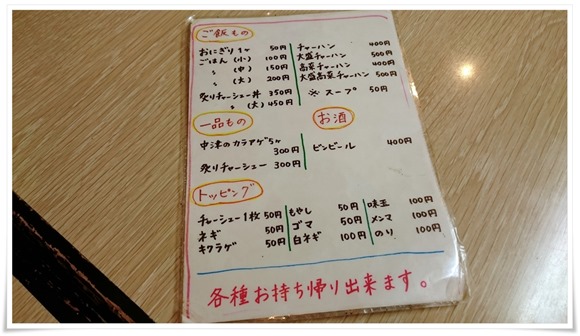 ご飯もの
おにぎり1ヶ 50円
ごはん(小) 100円
〃 (中) 150円
〃 (大) 200円
炙りチャーシュー丼 350円
〃 (大) 450円
チャーハン 400円
大盛チャーハン 500円
高菜チャーハン 400円
大盛高菜チャーハン 500円
※スープ 50円
一品もの
中津のカラアゲ5ヶ
300円
炙りチャーシュー 300円
お酒
ビンビール 400円
トッピング
チャーシュー1枚 50円
ネギ 50円
キクラゲ 50円
もやし 50円
ゴマ 50円
白ネギ 100円
味玉 100円
メンマ 100円
のり 100円
各種お持ち帰り出来ます。